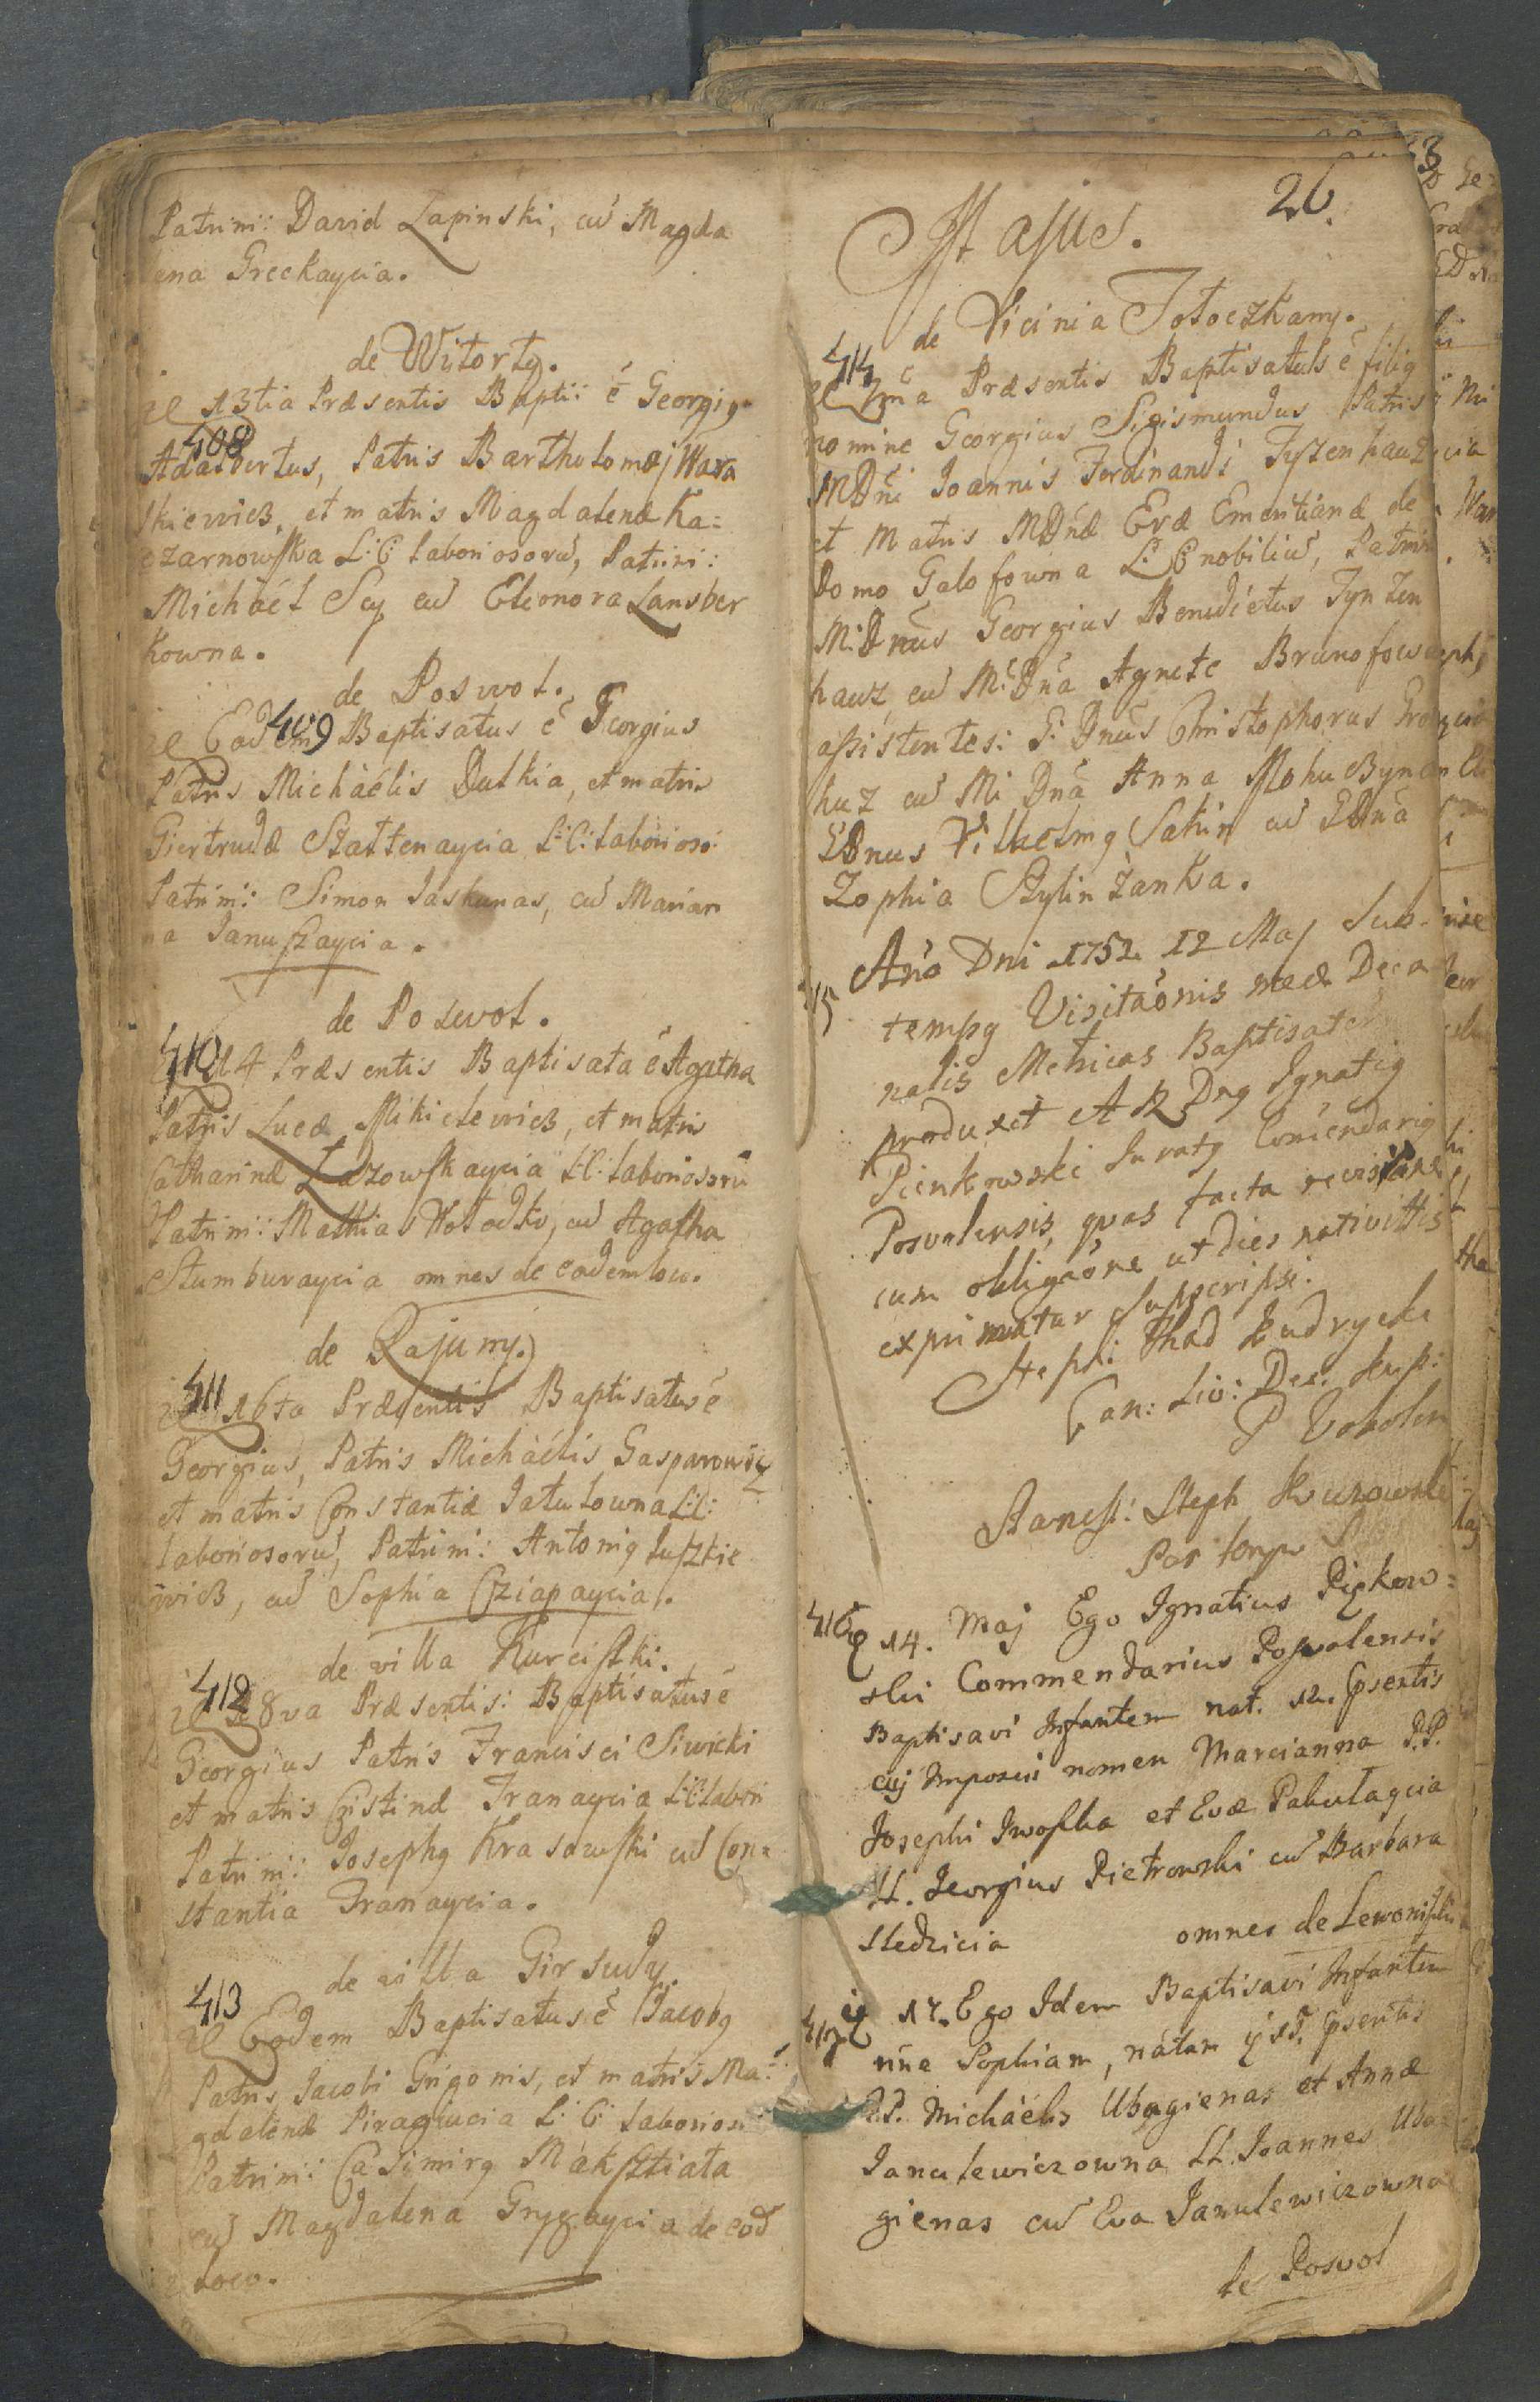 Patrini: David Łapinski, cu Magda
lena Greckaycia.
de Witorty.
13tia Præsentis Bapti: ē Georgig
408
Adalbertus, Patris Bartholomæj Wara
skiewicz, et matris Magdalenæ Ka=
czarnowska L: C: laboriosoru, Patrini:
Michàél Scy cu Eleonora Lansber
kowna.
de Poswol.
409
Eadem Baptisatus ē Georgius
Patris Michàélis Dulkia, et matris
Giertrudæ Stattenaycia L: C: laborioso:
Patrini: Simon Jaskunas, cu Marian
na Januszaycia.
de Poswol.
410
14 Præsentis Baptisata ē Agatha
Patris Lucæ Mikielewicz, et matris
Catharinæ Łazowskaycia L: C: laboriosoru
Patrini: Mathias Wołodko, cu Agatha
Stumburaycia omnes de eodem loco.
de Rajuny.
411
16ta Præsentis Baptisatus ē
Georgius, Patris Michàélis Gasparowicz
et matris Constantiæ Jatułowna L: C:
laboriosoru, Patrini: Antonig Łuszkie
wicz, cu Sophia Cziapaycia.
de villa Kurciszki.
412
8va Præsentis: Baptisatus ē
Georgius Patris Francisci Siwicki
et matris Cristinæ Franaycia L: C: labori
Patrini: Josephg Krasowski cu Con=
stantia Franaycia.
de villa Girsudy.
413
Eodem Baptisatus ē Jacobg
Patris Jacobi Grigonis, et matris Ma=
gdalenæ Piragiucia L: C: laborioso
Patrini: Casimirg Máksztiała
cu Magdalena Grygaycia de eod
loco.
26
Majus.
de Vicinia Tołoczkamy.
414
1ma Præsentis Baptisatus ē filig
nomine Georgius Sigismundus Patris
MDni Joannis Ferdinandi Tyzenhauz
et Matris MDnæ Evæ Ementianæ de
Domo Galofowna L: C: nobiliu, Patrini
M: Dnus Georgius Benedictus Tynzen
hauz cu M: Dna Agnete Brunofow
assistentes: G: Dnus Christophorus Grot
huz cu M Dna Anna Mohuczyn
GDnus Vilhelmg Sakin cu GDna
Zophia Stylinżanka.
415
Ano Dni 1752. 12 Maj sub
tempg Visitaonis meæ Deca
nalis Metricas Baptisator
produxit A R Dng Ignatig
Pienkowski Curatg Comendarig
Posvolensis, quas facta revisione
cum obligaone ut dies nativittis
exprimatur suscripsi.
Steph: Thad Kudrycki
Can: Liv: Dec. Kup:
P Vobolen
Steph
Por temp
416
14. Maj Ego Ignatius Piękow=
ski Commendarius Poswolensis
Baptisavi Infantem nat. 12. Psentis
cuj Imposui nomen Marcianna P.P.
Josephi Iwaszka et Evæ Pabulaycia
LL. Georgius Pietrowski cu Barbara
Sledzicia omnes de Lewoniszki
417
17. Ego Idem Baptisavi Infantem
nne Sophiam, nátam 15. Psentis
PP. Michàélis Ubagienas et Annæ
Janulewiczowna LL. Joannes Uba=
gienas cu Eva Janulewiczowna
de Posvol